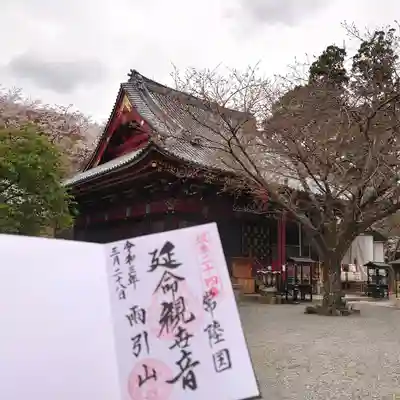 坂東二十四 常陸国
延命観世音
雨引山
令和三年
三月二十八日